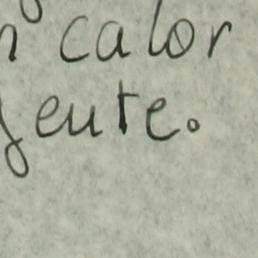 calor
gente.